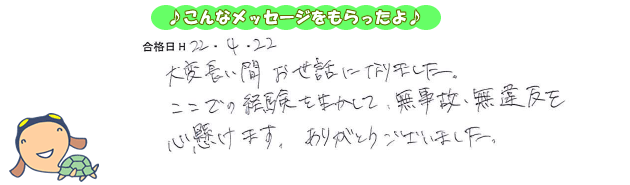 ♪こんなメッセージをもらったよ♪
合格日 H 22・4・22
大変長い間 お世話になりました。
ここでの経験を生かして、無事故、無違反を
心懸けます。ありがとうございました。